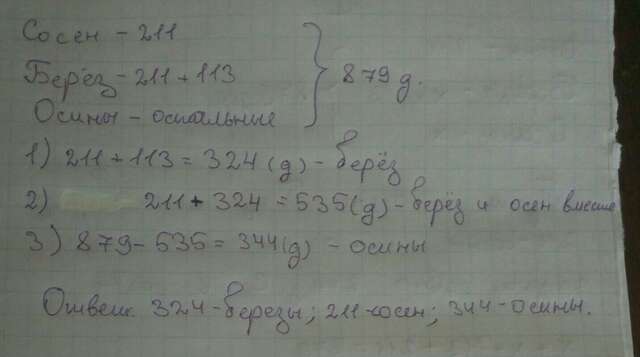 Сосен - 211
Берёз - 211 + 113
Осины - остальные
879 д.
1) 211 + 113 = 324 (д) - берёз
2) 211 + 324 = 535 (д) - берёз и осен вместе
3) 879 - 535 = 344 (д) - осины
Ответ. 324 - березы; 211 - сосен; 344 - осины.